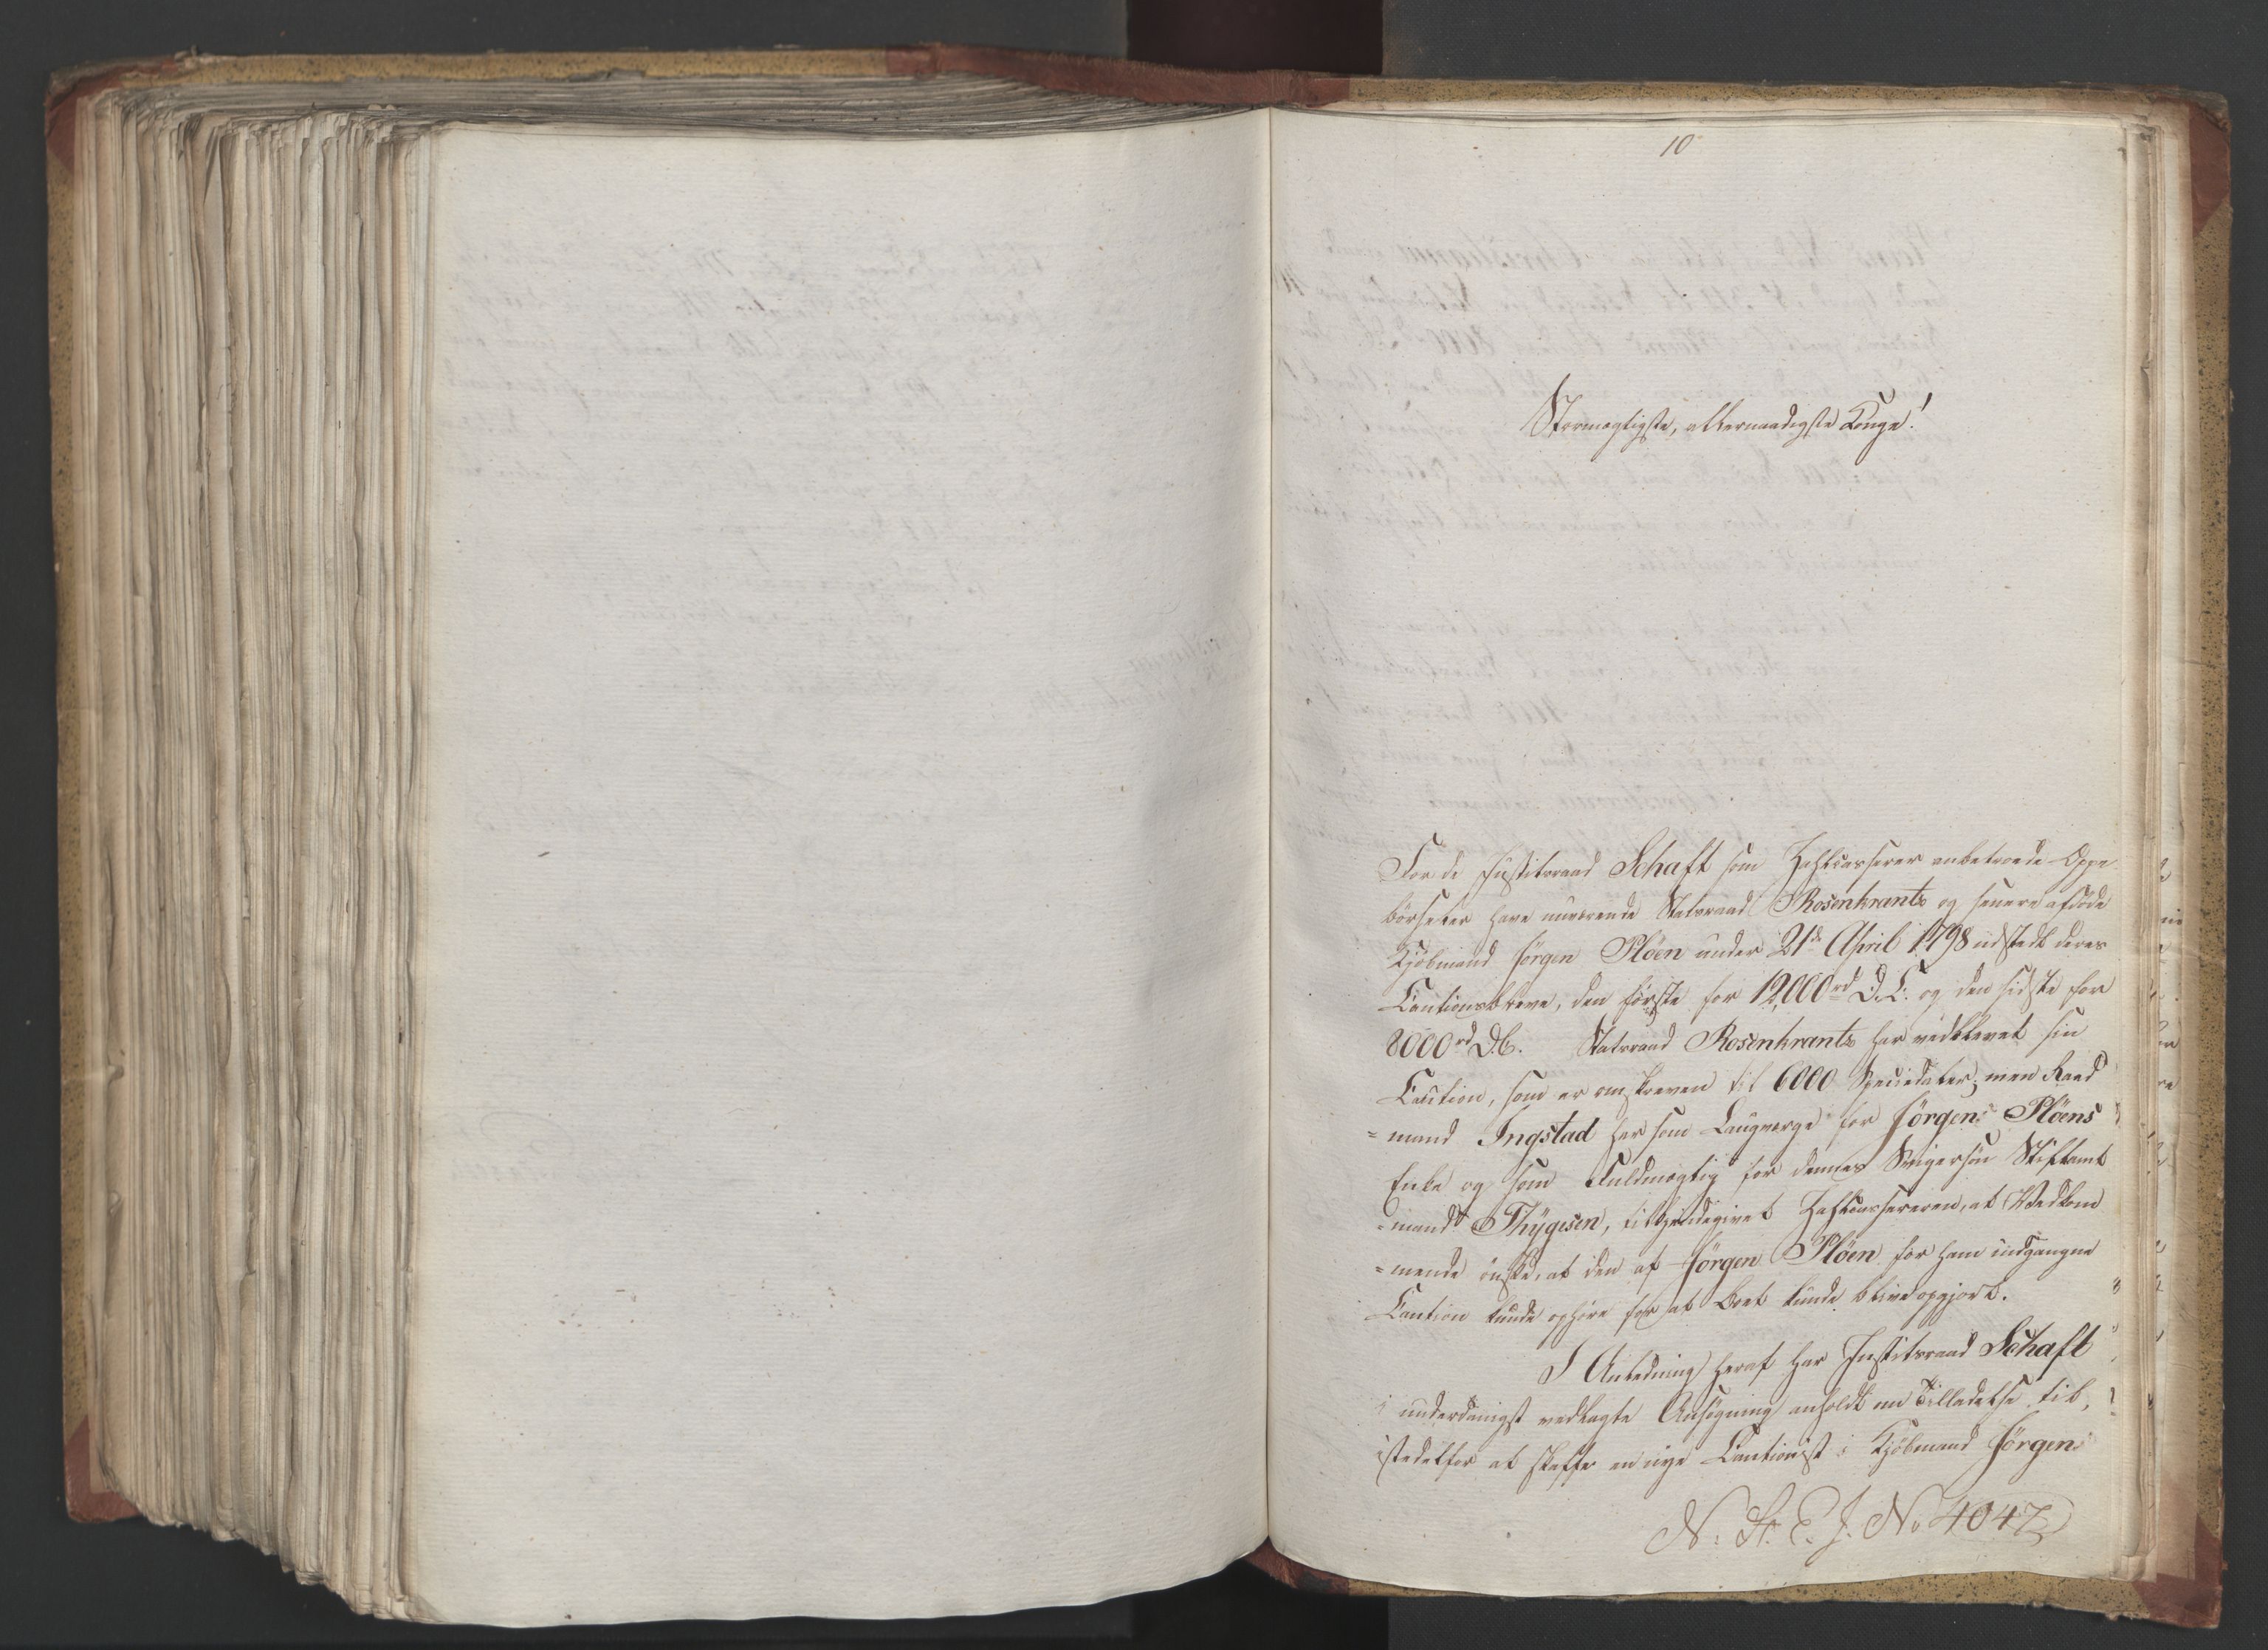 10
Stormægtigste, allernaadigste Konge!
For de Justitsraad Schaft som Zahlcasserer anbetroede Oppe
børseler have nuværende Statsraad Rosenkrantz og senere afdöde
Kjöbmand Jörgen Plöen under 21de April 1798 udstedt deres
Cautionsbreve, den förste for 12,000rd D.C. og den sidste for
8000rd D.C. Statsraad Rosenkrantz har vedblevet sin
Caution, som er omskreven til 6000 Speciedaler; men Raad
=mand Ingstad har som Laugværge for Jörgen Plöens
Enke og som Fuldmægtig for dennes Svigersön Stiftamt
=mand Thygesen, tilkjendegivet Zahlcassereren, at Vedkom
=mende önske, at den af Jörgen Plöen for ham indgangne
Caution kunde ophöre for at Boet kunde blive opgjort.
I Anledning heraf har Justitsraad Schaft
i underdanigst vedlagte Ansögning anholdt om Tilladelse til,
istedetfor at skaffe en nye Cautionist i Kjöbmand Jörgen
N. St. E. J. No 4047